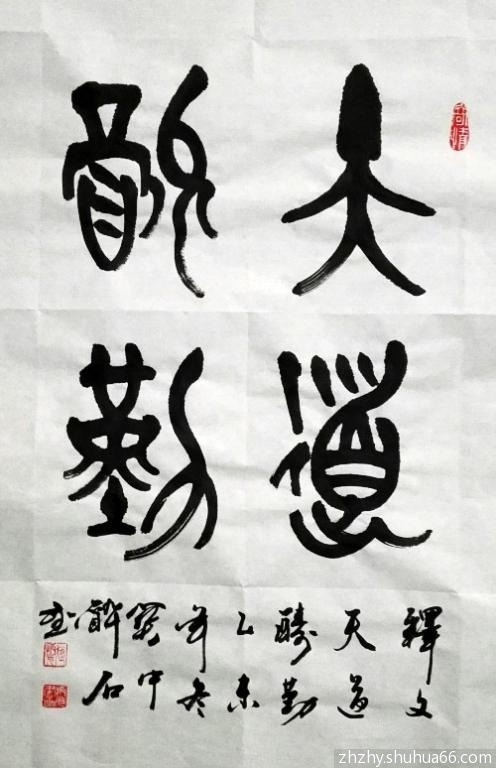 天道
酬勤
釋文
天道
酬勤
乙未
年冬
冀中
石
zhzhy.shuhua66.com